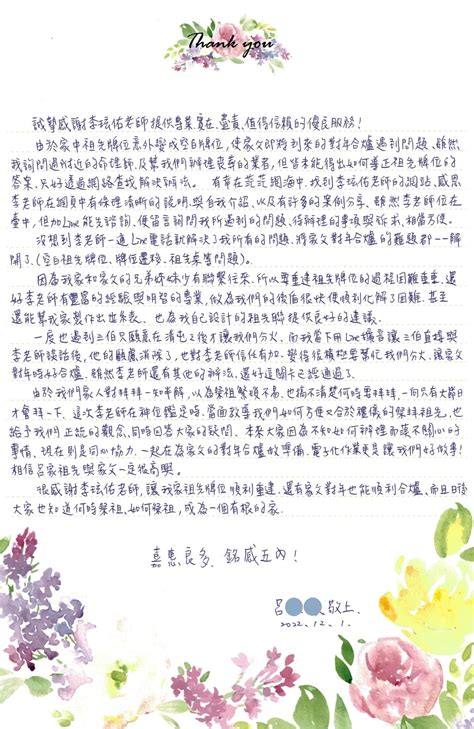 Thank you
誠摯感謝李玹佑老師提供專業、實在、盡責、值得信賴的優良服務!
由於家中祖先牌位意外變成空白牌位,使家父即將到來的對年合爐遇到問題,雖然
我詢問過附近的命理師,及幫我們辦理喪葬的業者,但皆未能得出如何導正祖先牌位的
答案,只好透過網路查找解決辦法。有幸在茫茫網海中,找到李玹佑老師的網站,感恩
李老師在網頁中有條理清晰的說明,與自我介紹,以及有許多的案例分享,雖然李老師位在
臺中,但加Line能先諮詢、便留言詢問我所遇到的問題、待辦理的事情與訴求,相當方便。
沒想到李老師一通Line電話就解決了我所有的問題,將家父對年合爐的難題都一一解
開了(空白祖先牌位、牌位遷移、祖先桌等問題)。
因為我家和家父的兄弟姊妹少有聯繫往來,所以要重建祖先牌位的過程困難重重,還
好李老師有豐富的經驗與明智的專業,做為我們的後盾很快便順利化解了困難,甚至
還能幫我家製作出世系表、也為我自己設計的祖先聯提供良好的建議。
一度也遇到三伯只願意在清屯之後才讓我們分火,而我當下用Line擴音讓三伯直接與
李老師談話後,他的顧慮消除了,也對李老師信任有加,變得很積極要幫忙我們分火,讓家父
對年時好合爐,雖然李老師還有其他的辦法,還好這關卡已經通過了。
由於我們家人對拜拜一知半解,以為祭祖繁瑣不易,也搞不清楚何時要拜拜,一向只有大節日
才會拜一下,這次李老師在神位鑑定時,當面教導我們如何方便又合於禮儀的祭拜祖先,也
給予我們正統的觀念,同時回答大家的疑問。本來大家因為不知如何辦理而漠不關心的
事情,現在則是同心協力、一起在為家父的對年合爐做準備,電子化作業更是讓我們好做事!
相信呂家祖先與家父一定很高興。
很感謝李玹佑老師,讓我家祖先牌位順利重建,還有家父對年也能順利合爐,而且日後
大家也知道何時祭祖、如何祭祖,成為一個有根的家。
嘉惠良多,銘感五內!
呂 敬上.
2022.12.1.